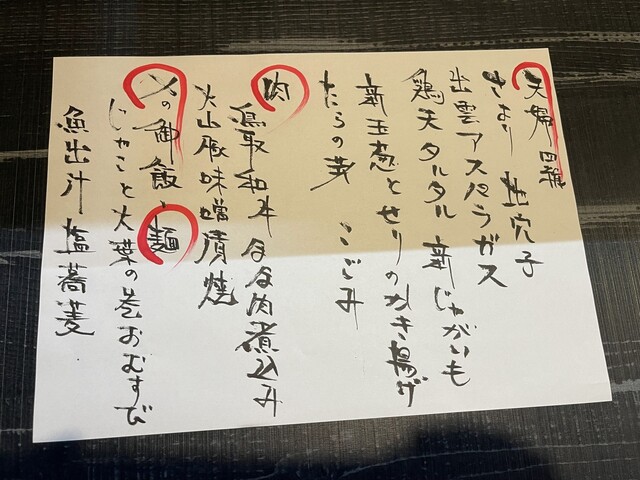 天婦羅
さより 地穴子
出雲アスパラガス
鶏天タルタル 新じゃがいも
新玉葱とせりのかき揚げ
たらの芽 こごみ
肉
鳥取和牛 すね肉煮込み
大山豚味噌漬焼
〆の御飯、麺
じゃこと大葉の巻おむすび
魚出汁 塩蕎麦